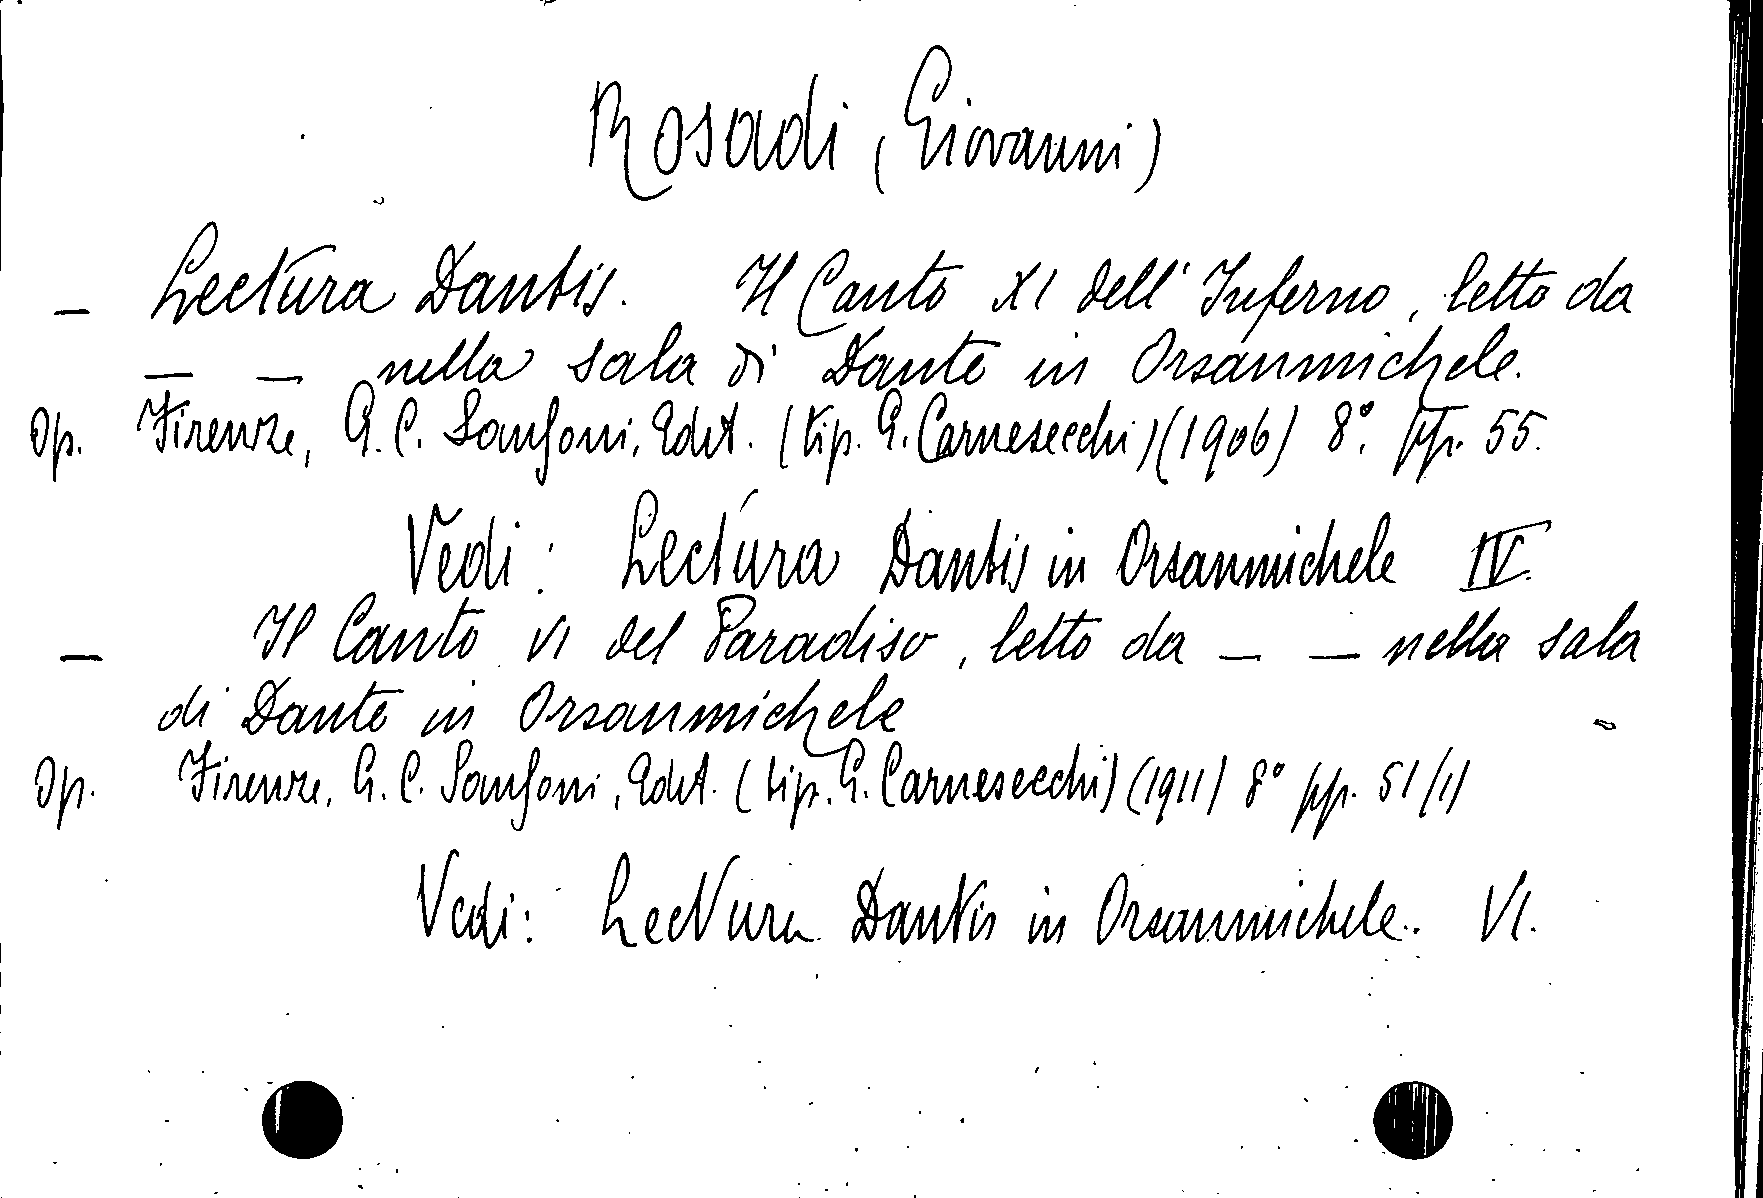 Rosadi (Giovanni)
— Lectura Dantis. Il Canto XI dell'Inferno, letto da
— — nella sala di Dante in Orsanmichele.
Op. Firenze, G. C. Sansoni, Edit. (tip. G. Carnesecchi) (1906) 8°. pp. 55.
Vedi: Lectura Dantis in Orsanmichele IV.
— Il Canto VI del Paradiso, letto da — — nella sala
di Dante in Orsanmichele
Op. Firenze, G. C. Sansoni, Edit. (tip. G. Carnesecchi) (1911) 8° pp. 51/1)
Vedi: Lectura Dantis in Orsanmichele. VI.